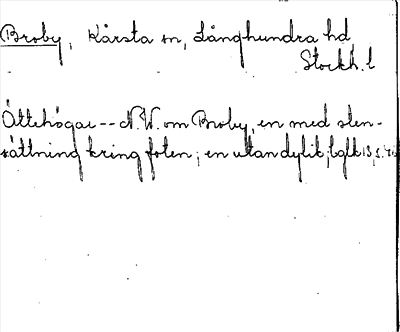 Broby, Kårsta sn, Långhundra hd
Stockh. l
Ättehögar -- N.W. om Broby, en med sten-
sättning kring foten; en utan dylik; bglk 13, s.